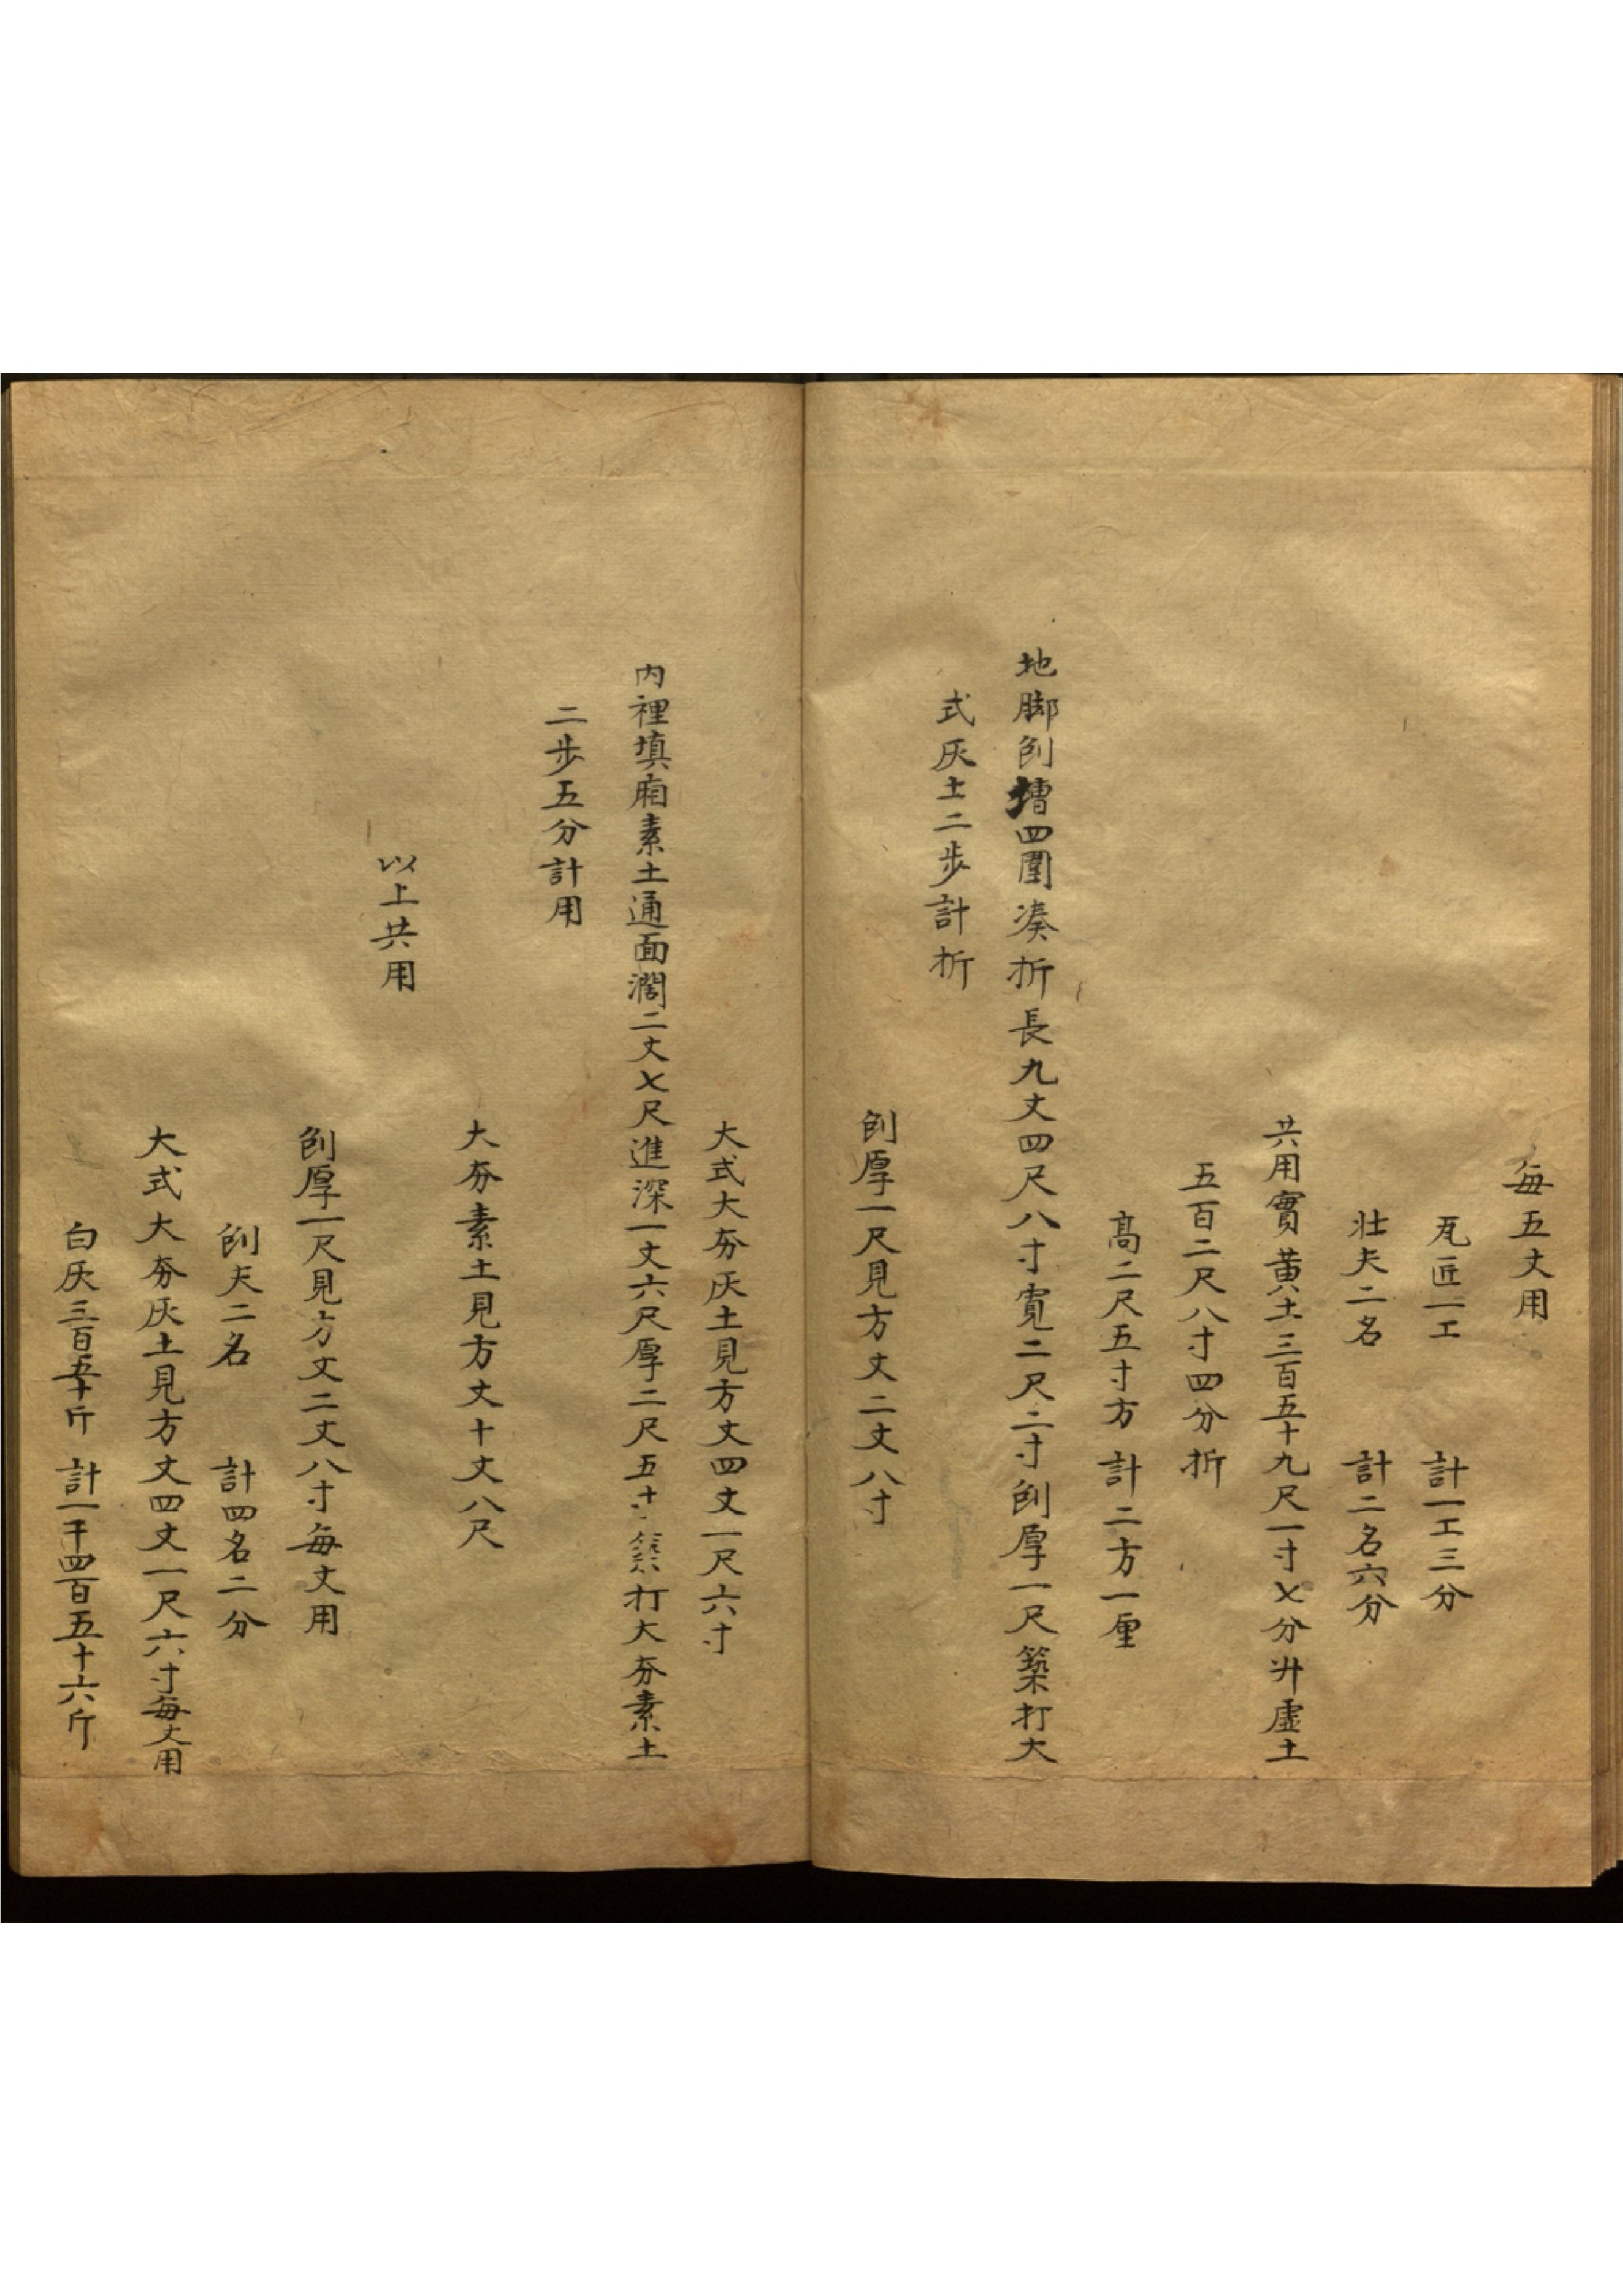 每五丈用
瓦匠一工 計一工三分
壯夫二名 計二名六分
共用實黃土三百五十九尺一寸七分升虛土
五百二尺八寸四分折
高二尺五寸方 計二方一厘
地脚刨槽四圍湊折長九丈四尺八寸寬二尺二寸刨厚一尺築打大
式灰土二步計折
刨厚一尺見方丈二丈八寸
大式大夯灰土見方丈四丈一尺六寸
內裡填廂素土通面濶二丈七尺進深一丈六尺厚二尺五寸築打大夯素土
二步五分計用
大夯素土見方丈十丈八尺
以上共用
刨厚一尺見方丈二丈八寸每丈用
刨夫二名 計四名二分
大式大夯灰土見方丈四丈一尺六寸每丈用
白灰三百五十斤 計一千四百五十六斤